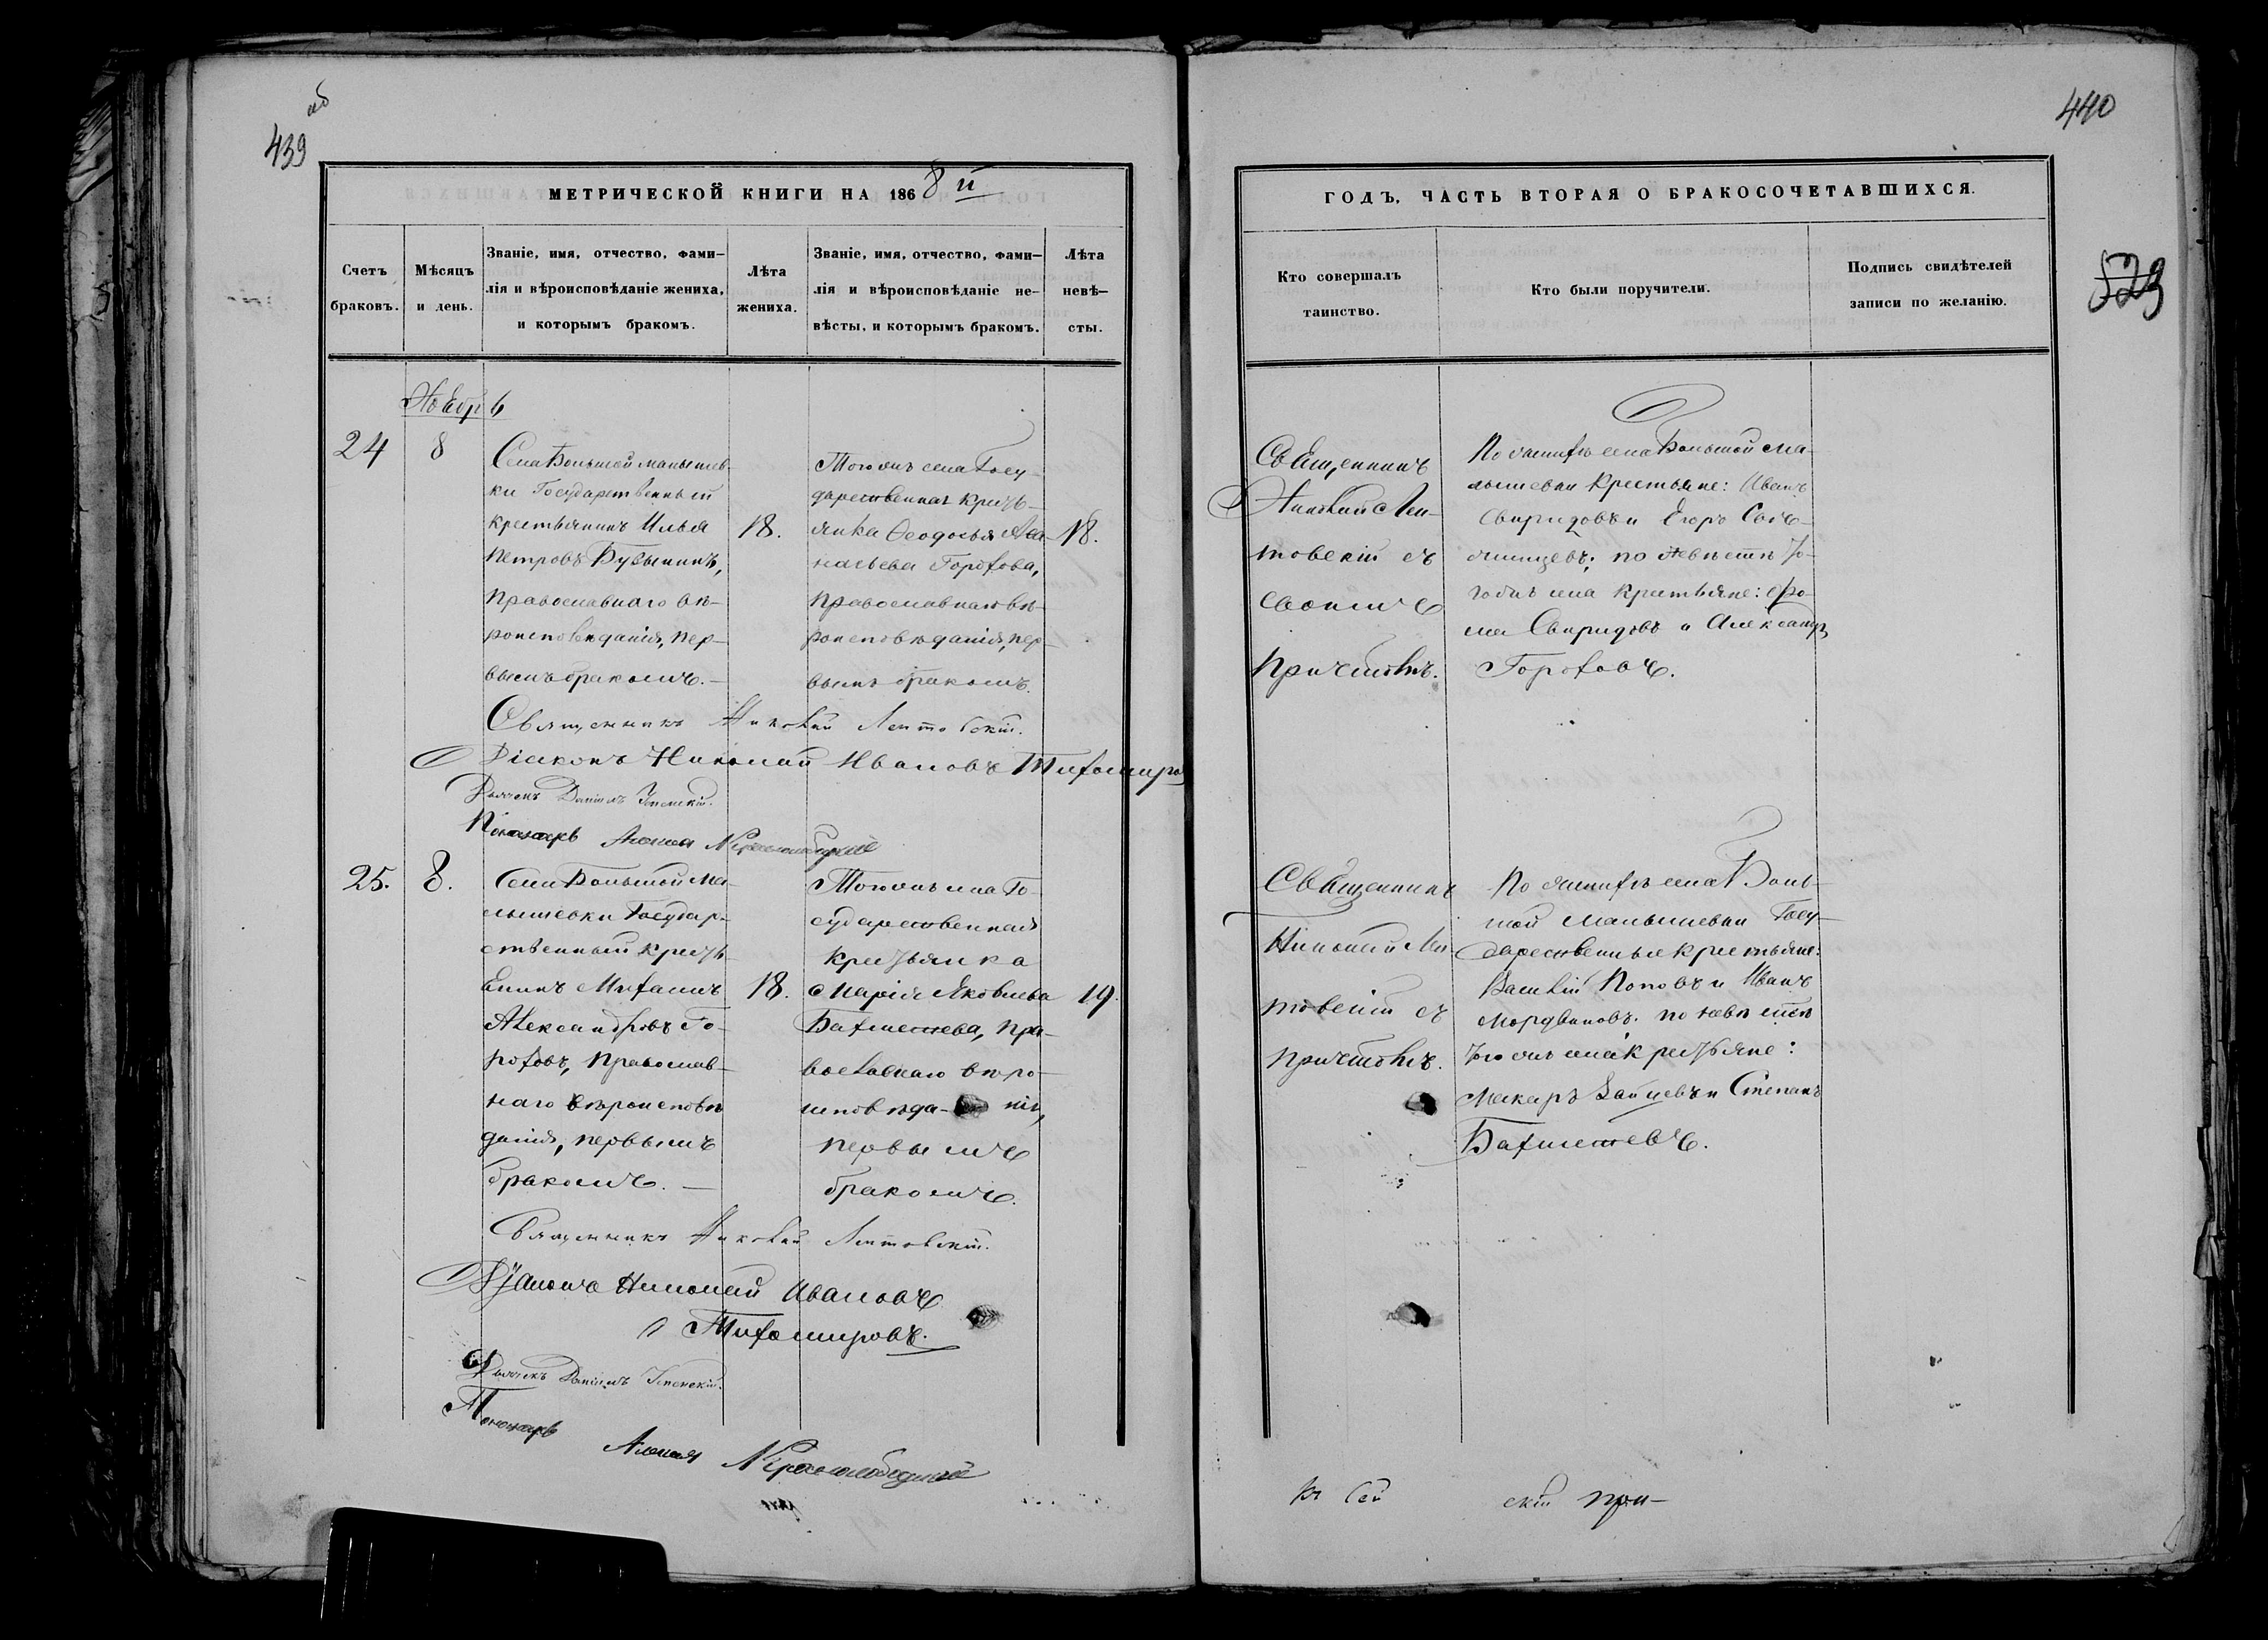 об
439
440
529
МЕТРИЧЕСКОЙ КНИГИ НА 1868 й
ГОДЪ, ЧАСТЬ ВТОРАЯ О БРАКОСОЧЕТАВШИХСЯ.
Счетъ
браковъ.
Мѣсяцъ
и день.
Званіе, имя, отчество, фами-
лія и вѣроисповѣданіе жениха,
и которымъ бракомъ.
Лѣта
жениха.
Званіе, имя, отчество, фами-
лія и вѣроисповѣданіе не-
вѣсты, и которымъ бракомъ.
Лѣта
невѣ-
сты.
Кто совершалъ
таинство.
Кто были поручители.
Подпись свидѣтелей
записи по желанію.
Ноябрь
24
8
Села Большой Малышев
ки Государственный
крестьянинъ Илья
Петровъ
Православнаго вѣ-
роисповѣданія, пер-
вымъ бракомъ.-
18.
Того же села Госу-
дарственная кресть-
янка Ѳеодосья Аѳа-
насьева Горохова,
Православнаго вѣ-
роисповѣданія, пер-
вымъ бракомъ.
18.
Священникъ
Николай
товскій съ
своимъ
Причтомъ.
По женихѣ села Большой Ма-
лышевки крестьяне: Иванъ
Свиридовъ и Егоръ
по невѣстѣ то-
гоже села крестьяне:
ма Свиридовъ и Александръ
Гороховъ.
Священникъ Николай
Діаконъ Николай Ивановъ Тихомиров
Дьячекъ Даніилъ Успенскій.
Пономарь
25.
8.
Села Большой Ма-
лышевки Государ-
ственный кресть
янинъ Михаилъ
Александровъ Го-
роховъ, Православ-
наго вѣроисповѣ
данія, первымъ
бракомъ. -
18.
Того же села Го-
сударственная
крестьянка
Марія Яковлева
Бахметева, Пра-
вославнаго вѣро-
исповѣда- нія,
первымъ
бракомъ.
19.
Священникъ
Николай
товскій съ
Причтомъ.
По женихѣ села Боль-
шой Малышевки Госу-
дарственные крестьяне:
Василій Поповъ и Иванъ
Мордвиновъ. по невѣстѣ
того же села крестьяне:
Макаръ Зайцевъ и Степанъ
Бахметевъ.
Священникъ Николай
Діаконъ Николай Ивановъ
Тихомировъ.
Дьячекъ Даніилъ Успенскій.
Пономарь
Къ сей
скій при-